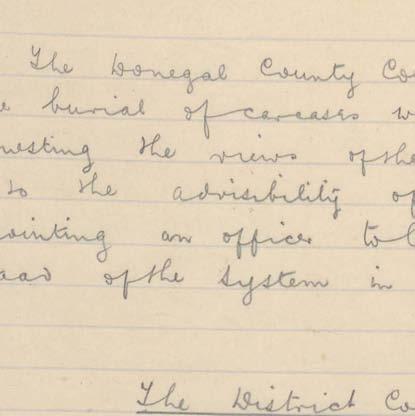 The Donegal County Co
e burial of carcases w
uesting the views of the
to the advisibility of
ointing an officer to
of the system in
The District Co